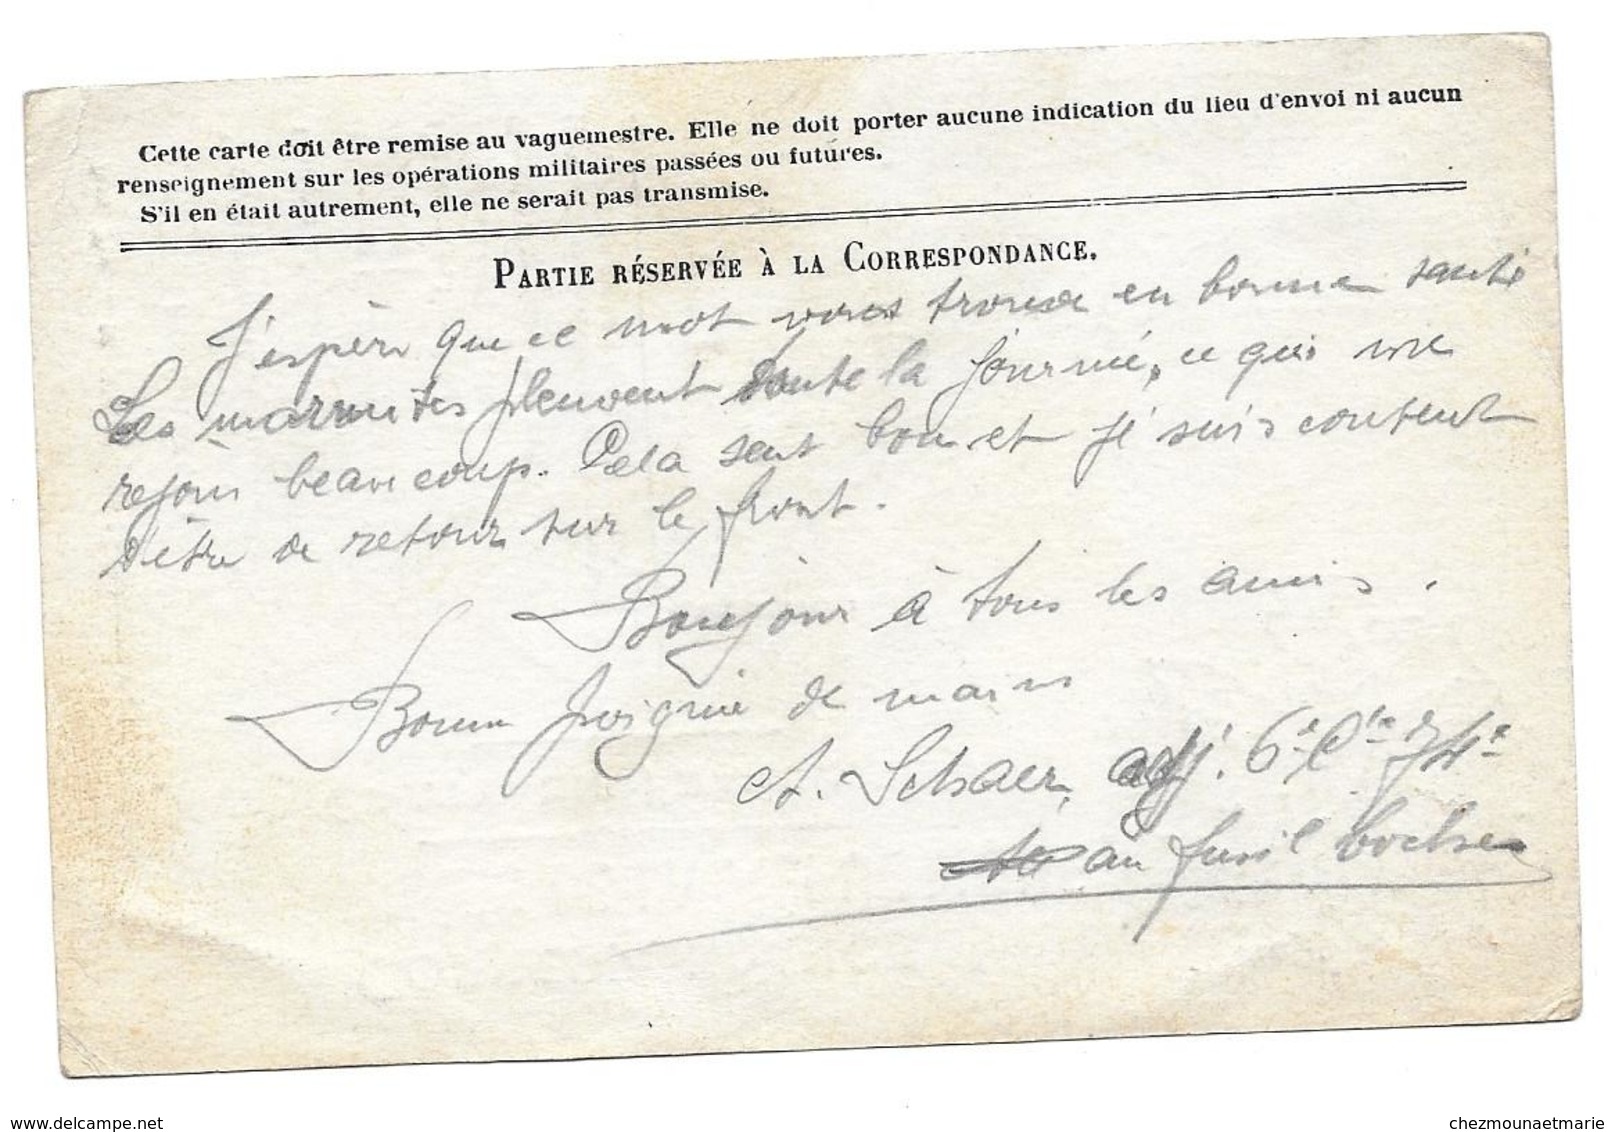 Cette carte doit être remise au vaguemestre. Elle ne doit porter aucune indication du lieu d'envoi ni aucun
renseignement sur les opérations militaires passées ou futures.
S'il en était autrement, elle ne serait pas transmise.
PARTIE RÉSERVÉE À LA CORRESPONDANCE.
J'espère que ce mot vous trouve en bonne santé
Les marmites pleuvent toute la journée, ce qui me
rejoui beaucoup. Cela sent bon et je suis content
d'être de retour sur le front.
Bonjour à tous les amis.
Bonne poignée de mains
A. Schaer, adj. 6e Cie 74e
au fusil boche
delcampe.net
chezmounaetmarie